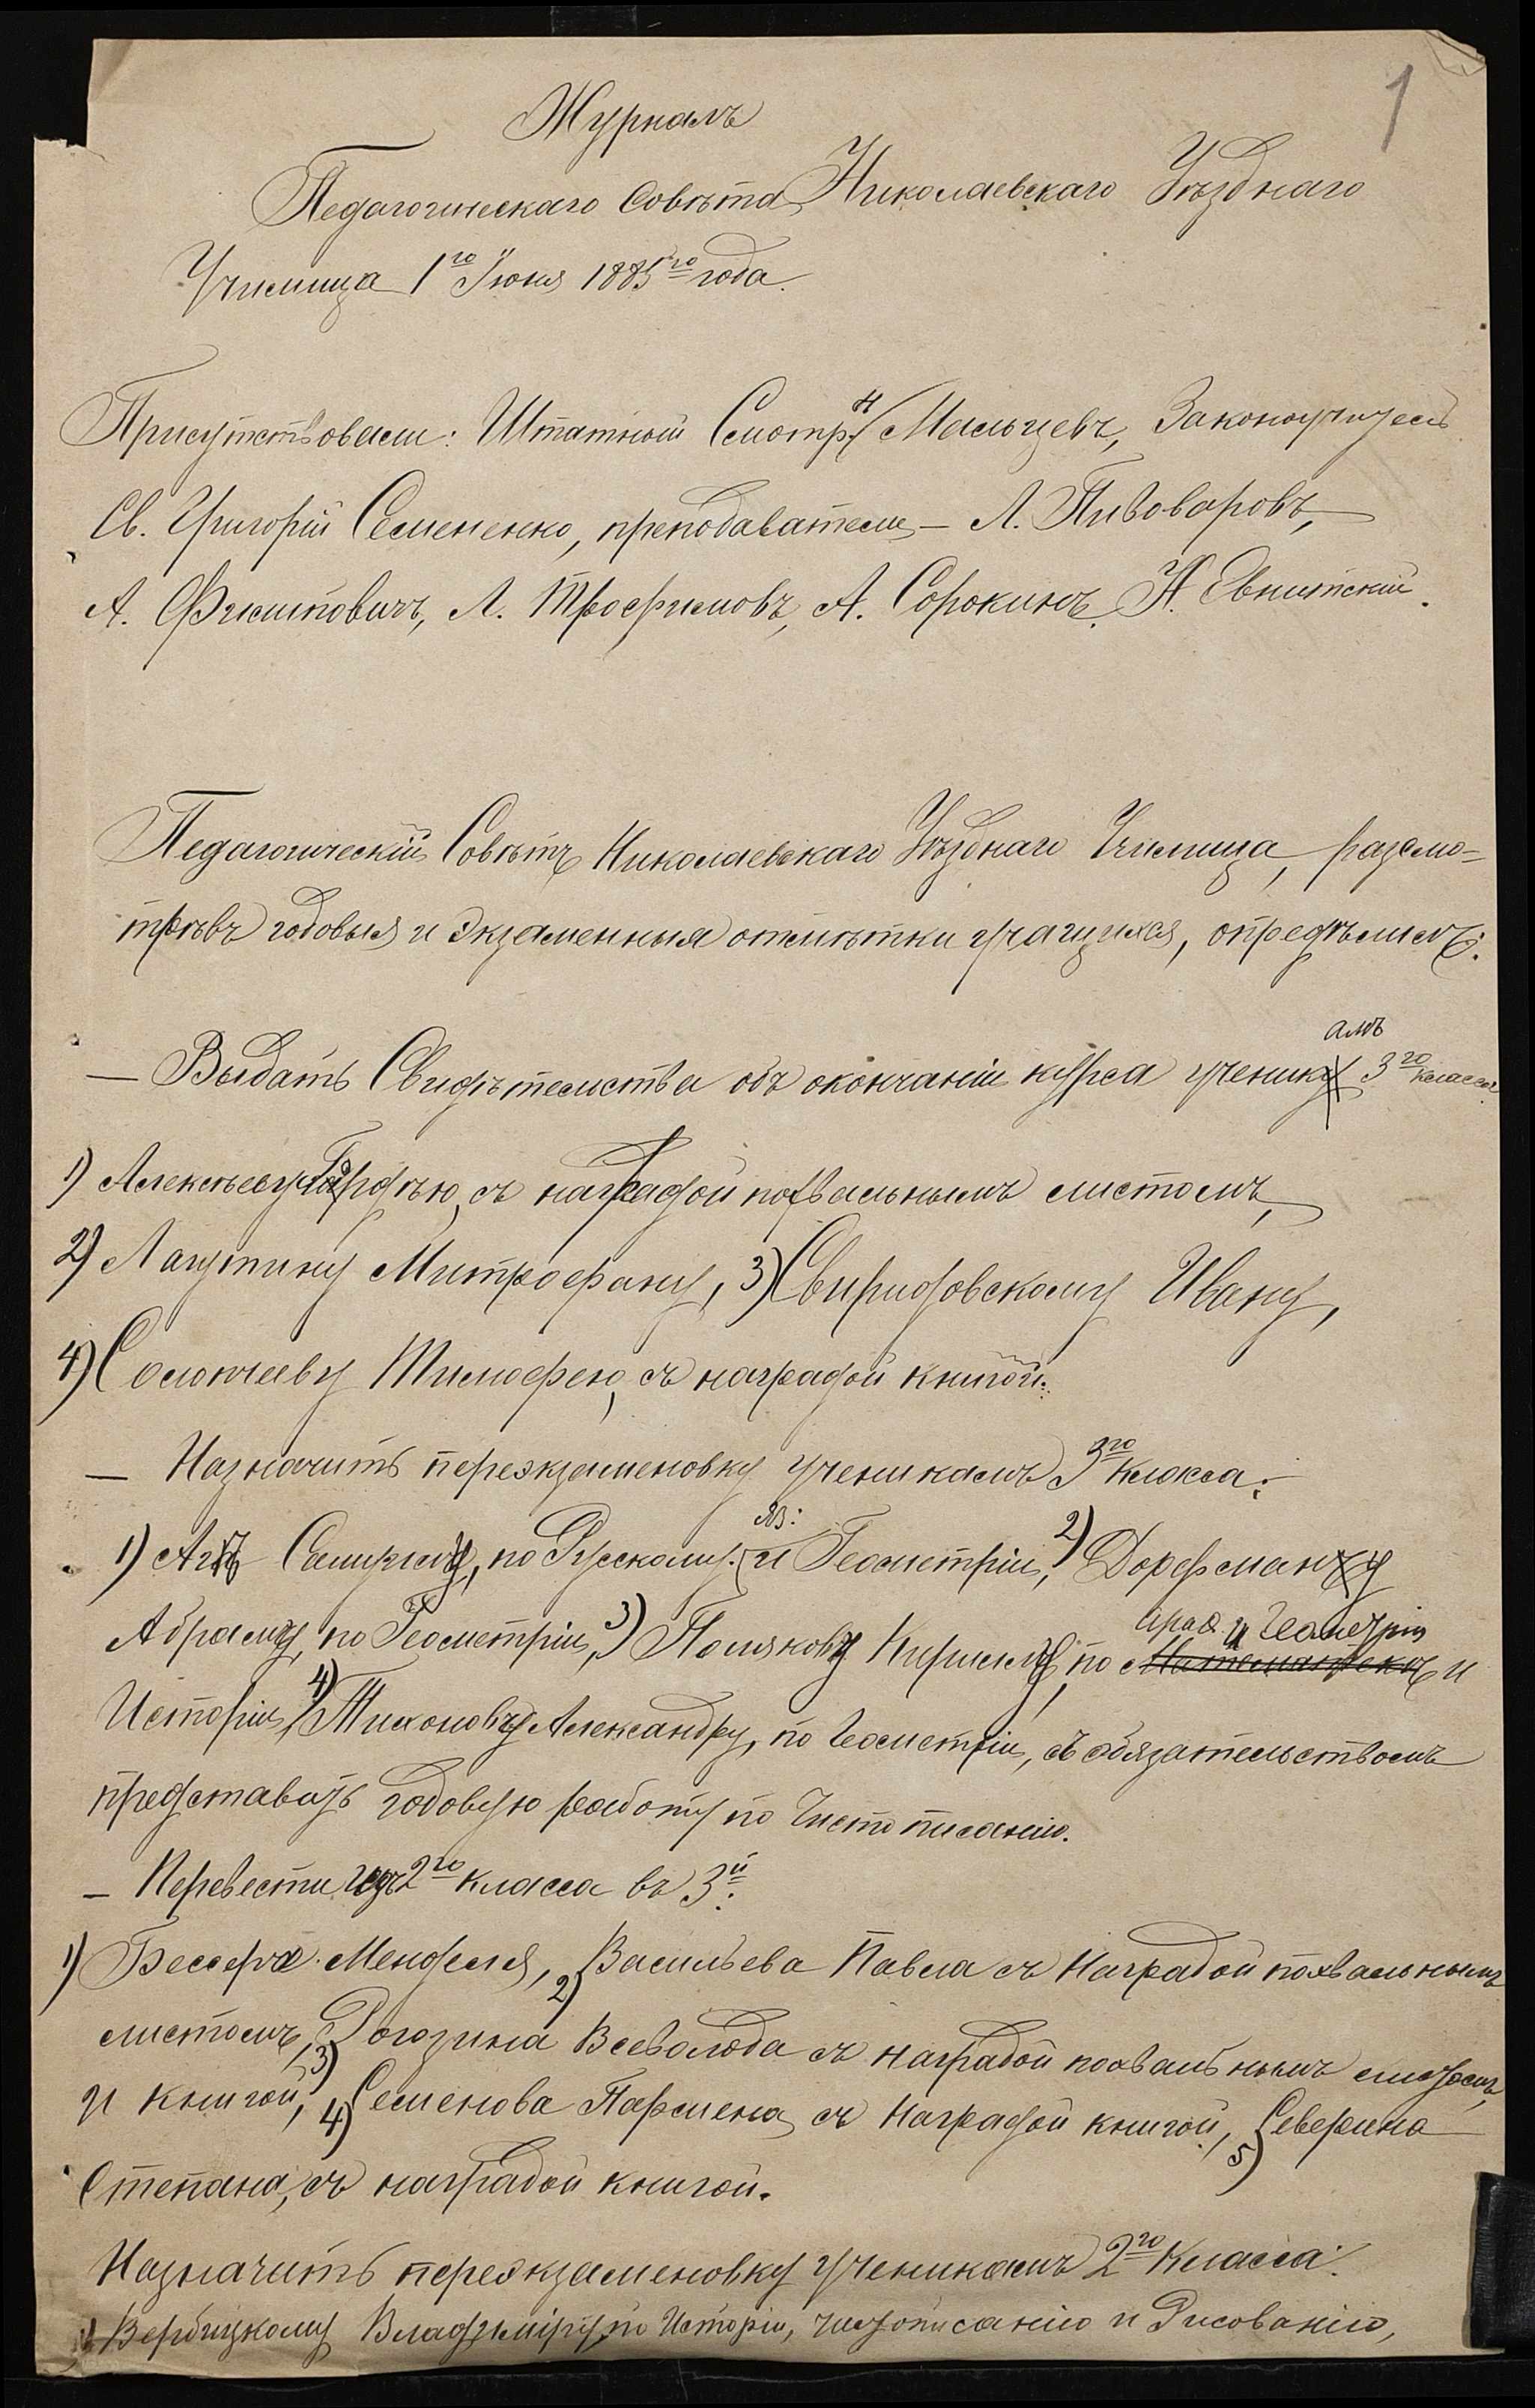 1
Журналъ
Педагогическаго Совѣта Николаевскаго Уѣзднаго
Училища 1го Іюня 1885го года.
Присутствовали: Штатный Смотр. Н. Мальцевъ, Законоучитель
Св. Григорій Семененко, преподаватели – Л. Пивоваровъ,
А. Филиповичъ, Л. Трофимовъ, А. Сорокинъ, Н.
Педагогическій Совѣтъ Николаевскаго Уѣзднаго Училища, разсмо-
трѣвъ годовыя и экзаменныя отмѣтки учащихся, опредѣлилъ:
— Выдать Свидѣтельства объ окончаніи курса ученикамъ 3го класса
1) Алексѣеву Гордѣю, съ наградой похвальнымъ листомъ,
2) Лагутину Митрофану, 3) Свиридовскому Ивану,
4) Солончееву Тимофею, съ наградой книгой.
— Назначить переэкзаменовку ученикамъ 3го класса:
1) Самуилу, по Русскому яз: и Геометріи, 2) Дорфману
Абраму, по Геометріи, 3) Полякову Кириллу, по Ариѳ. и Геометріи Математикѣ и
Исторіи, 4) Тихонову Александру, по Геометріи, съ обязательствомъ
представить годовую работу по Чистописанію.
— Перевести изъ 2го класса въ 3й:
1) Бессера Менделя, 2) Васильева Павла съ наградой похвальнымъ
листомъ, 3) Рогозина Всеволода съ наградой похвальнымъ листомъ
и книгой, 4) Семенова Пармена съ наградой книгой, 5) Северина
Степана, съ наградой книгой.
Назначить переэкзаменовку ученикамъ 2го класса:
1) Вербицкому Владиміру, по Исторіи, чистописанію и Рисованію,